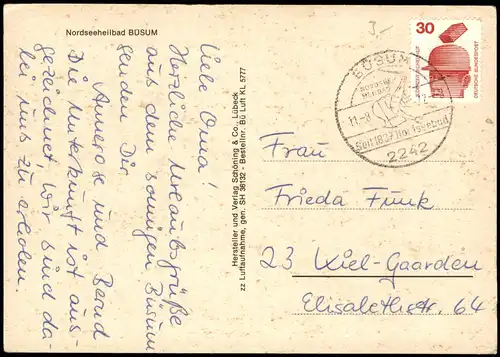 Nordseeheilbad BÜSUM
Liebe Oma!
Herzliche Urlaubsgrüße
aus dem sonnigen Büsum
senden Dir
Annerose und Bernd
Die Unterkunft ist aus-
gezeichnet, wir sind da-
bei uns zu erholen.
Hersteller und Verlag Schöning & Co., Lübeck
zz Luftaufnahme, gen. SH 36132 - Bestellnr. Bü Luft KL 5777
3,-
30
DEUTSCHE BUNDESPOST
BÜSUM
11.-8.
SEIT 1837 NORDSEEBAD
2242
Frau
Frieda Funk
23 Kiel-Gaarden
Elisabethstr. 64